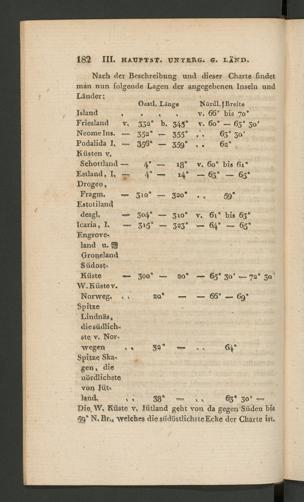 182 III. HAUPTST. UNTERG. G. LÄND.
Nach der Beschreibung und dieser Charte findet
man nun folgende Lagen der angegebenen Inseln und
Länder:
Oestl. Länge Nördl. Breite
Island , , , , v. 66° bis 70°
Friesland v. 332° b. 345° v. 60° — 63° 30'
Neome Ins. — 352° — 355° , . 63° 30'
Podalida I. — 356° — 359° . . 62°
Küsten v.
Schottland — 4° — 18° v. 60° bis 61°
Estland, I. — 4° — 14° — 63° — 65°
Drogeo,
Fragm. — 310° — 320° . . 59°
Estotiland
desgl. — 304° — 310° v. 61° bis 63°
Icaria, I. — 315° — 323° — 64° — 65°
Engrove-
land u.
Groneland
Südost-
Küste — 300° — 20° — 65° 30' — 72° 30'
W. Küste v.
Norweg. , . 20° — — 66° — 69°
Spitze
Lindnäs,
die südlich-
ste v. Nor-
wegen , . 32° — . . 64°
Spitze Ska-
gen, die
nördlichste
von Jüt-
land. , . 38° — . . 63° 30' —
Die W. Küste v. Jütland geht von da gegen Süden bis
59° N. Br., welches die südöstlichste Ecke der Charte ist.